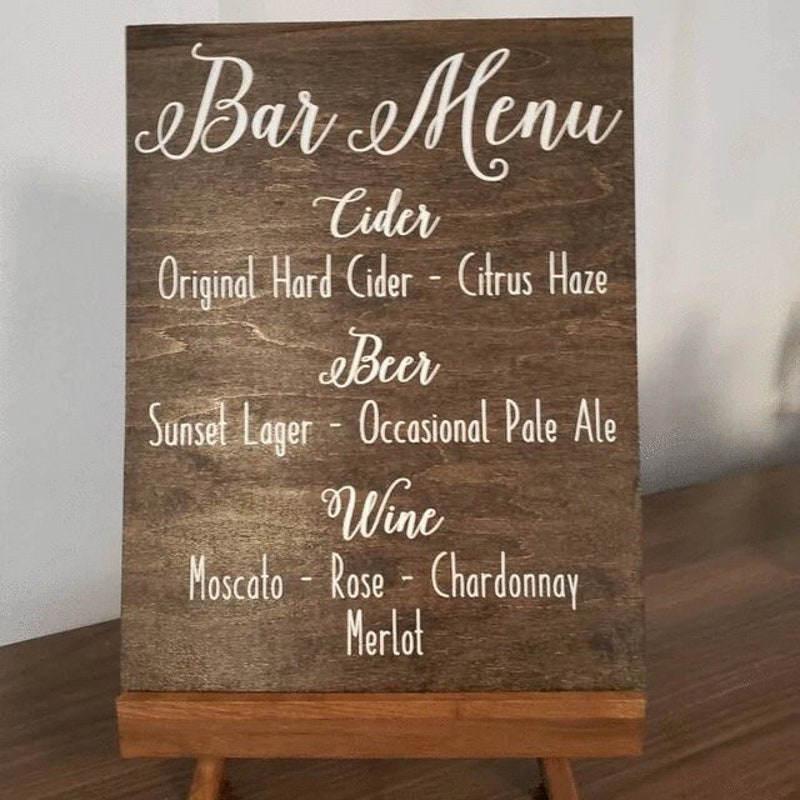 Bar Menu
Cider
Original Hard Cider - Citrus Haze
Beer
Sunset Lager - Occasional Pale Ale
Wine
Moscato - Rose - Chardonnay
Merlot